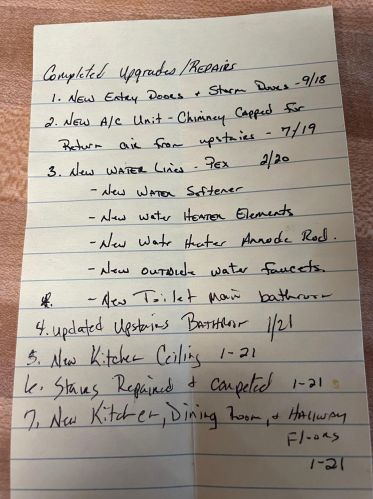 Completed Upgrades/Repairs
1. New Entry Doors + Storm Doors - 9/18
2. New A/C Unit - Chimney Capped for
Return air from upstairs - 7/19
3. New Water Lines - Pex 2/20
- New Water Softener
- New water Heater Elements
- New Watr Heater Annode Rod.
- New outside water faucets.
- New Toilet main bathroom
4. updated Upstairs Bathroom 1/21
5. New Kitchen Ceiling 1-21
6. Stairs Repaired & Carpeted 1-21
7. New Kitchen, Dining Room, & Hallway
Floors
1-21